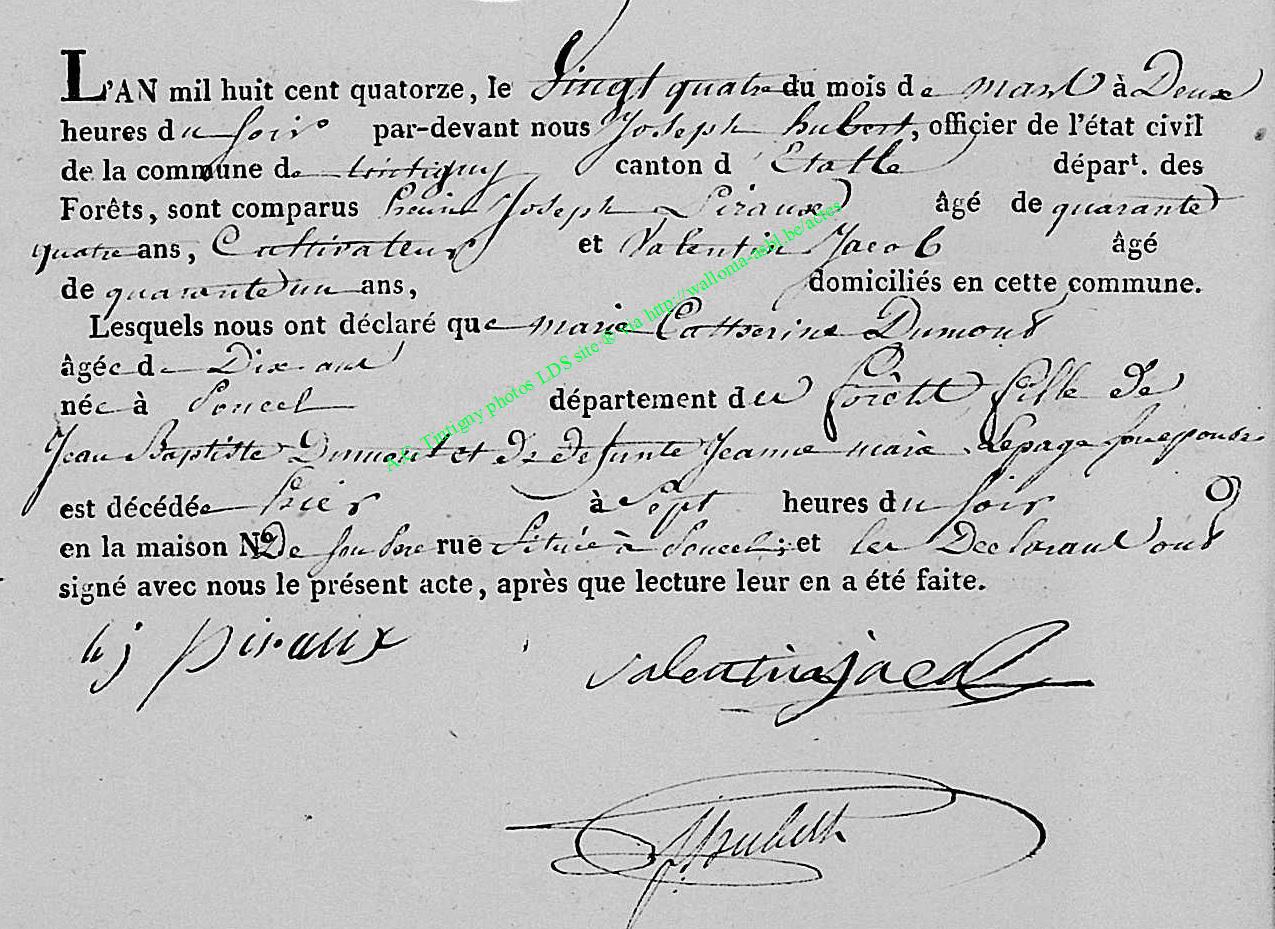 L'AN mil huit cent quatorze, le Vingt quatre du mois de mars à Deux
heures du soir par-devant nous Joseph hubert, officier de l'état civil
de la commune de tintigny canton d'Etalle départ. des
Forêts, sont comparus henri Joseph Piraux âgé de quarante
quatre ans, Cultivateur et Valentin Jacob âgé
de quarante un ans, domiciliés en cette commune.
Lesquels nous ont déclaré que marie Catherine Dumont
âgée de Dix ans
née à Poncel département des forêts fille de
Jean Baptiste Dumont et de defunte Jeanne marie Lepage son epouse
est décédée hier à Sept heures du soir
en la maison No De son pere rue située à Poncel; et les Declarant ont
signé avec nous le présent acte, après que lecture leur en a été faite.
h j piraux
valentin jacob
J. hubert
A.C. Tintigny photos LDS site © via http://wallonia-asbl.be/actes